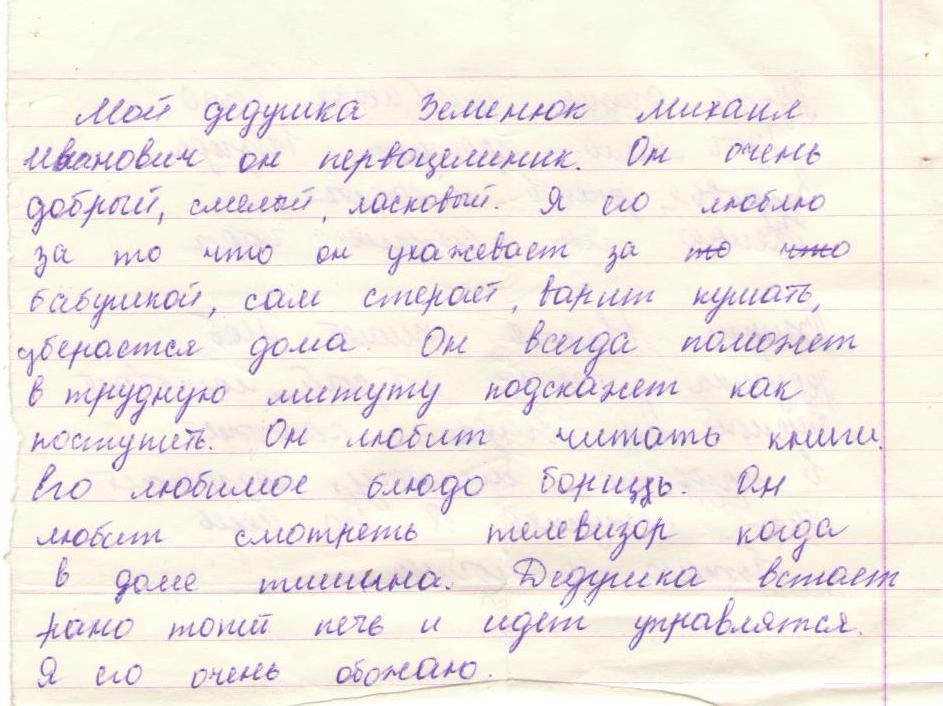 Мой дедушка Земенюк михаил
Иванович он первоцелиник. Он очень
добрый, смелый, ласковый. Я его люблю
за то что он ухажевает за то что
бабушкой, сам стерает, варит кушать,
уберается дома Он всегда поможет
в трудную митуту подскажет как
поступить. Он любит читать книги.
Его любимое блюдо борщь. Он
любит смотреть телевизор когда
в доме тишина. Дедушка встает
рано топит печь и идет управлятся.
Я его очень обожаю.